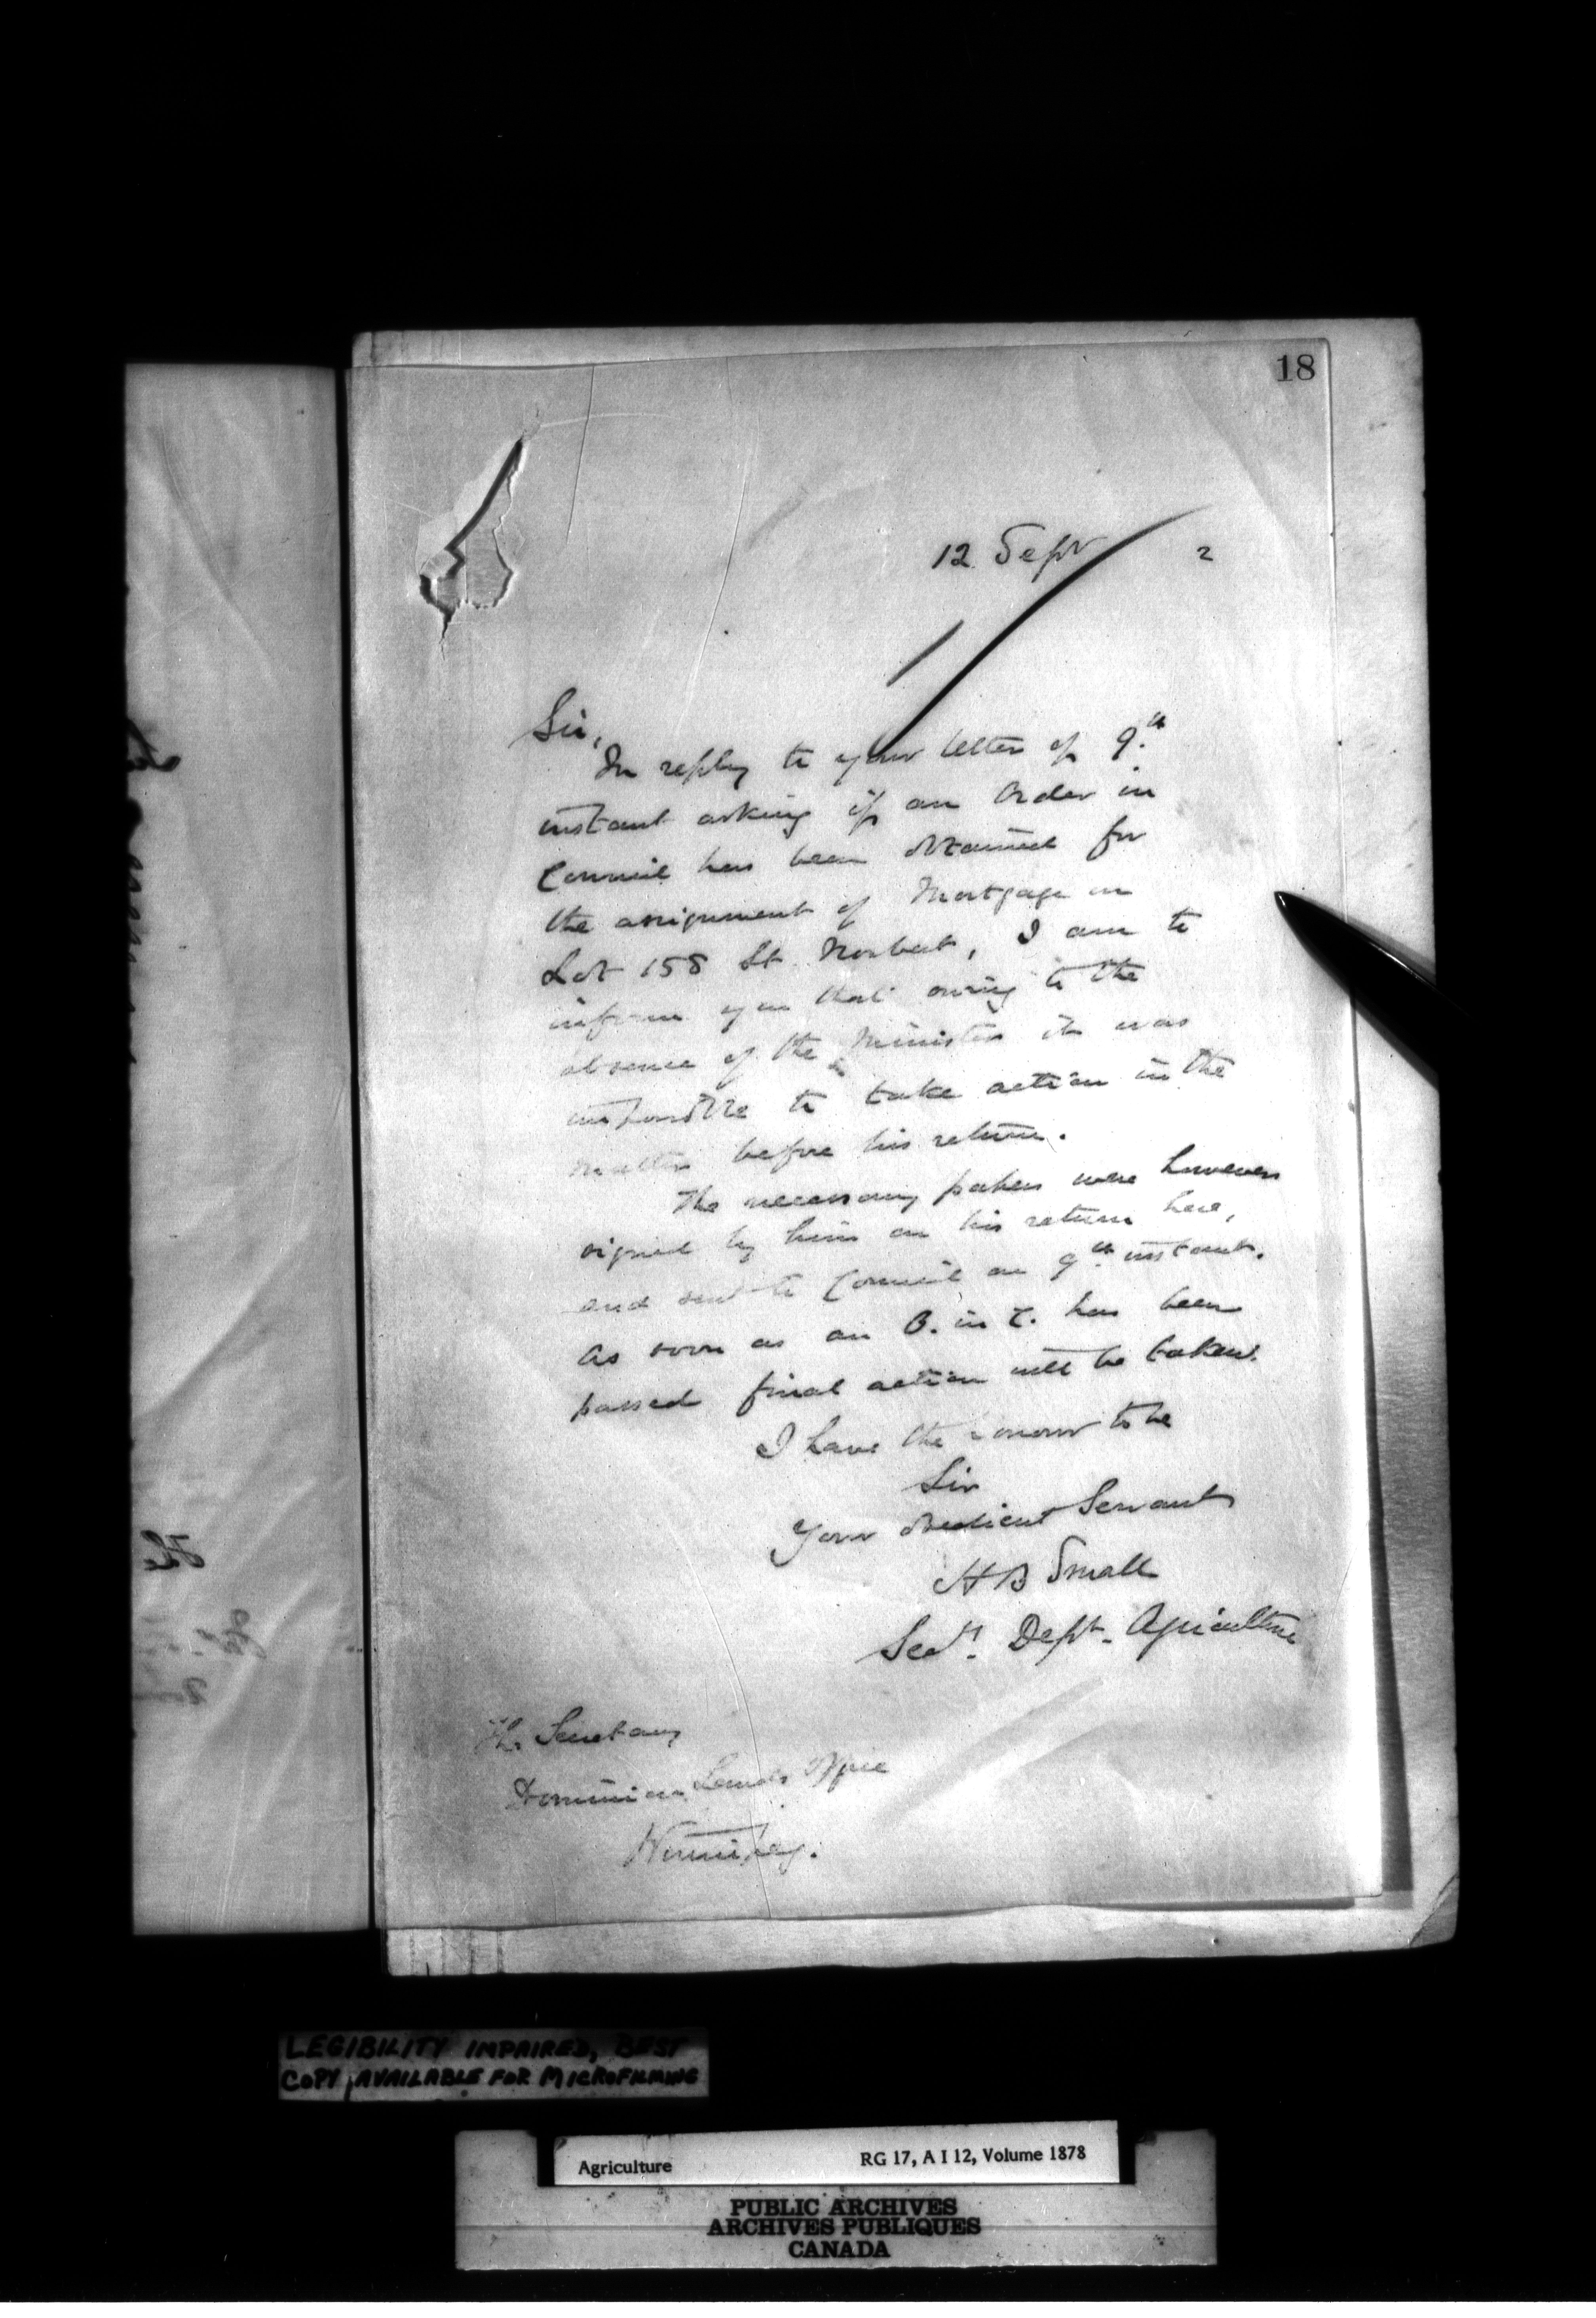 18
12 Sept 2
Sir,
In reply to your letter of 9th
instant asking if an Order in
Council has been obtained for
the assignment of Mortgage on
Lot 158 St. Norbert, I am to
inform you that owing to the
absence of the Minister it was
impossible to take action in the
matter before his return.
The necessary papers were however
signed by him on his return here,
and sent to Council on 9th instant.
As soon as an O. in C. has been
passed final action will be taken.
I have the honour to be
Sir
Your obedient Servant
H B Small
Secy. Dept. Agriculture
The Secretary
Dominion Lands Office
Winnipeg.
LEGIBILITY IMPAIRED, BEST
COPY AVAILABLE FOR MICROFILMING
Agriculture RG 17, A I 12, Volume 1878
PUBLIC ARCHIVES
ARCHIVES PUBLIQUES
CANADA